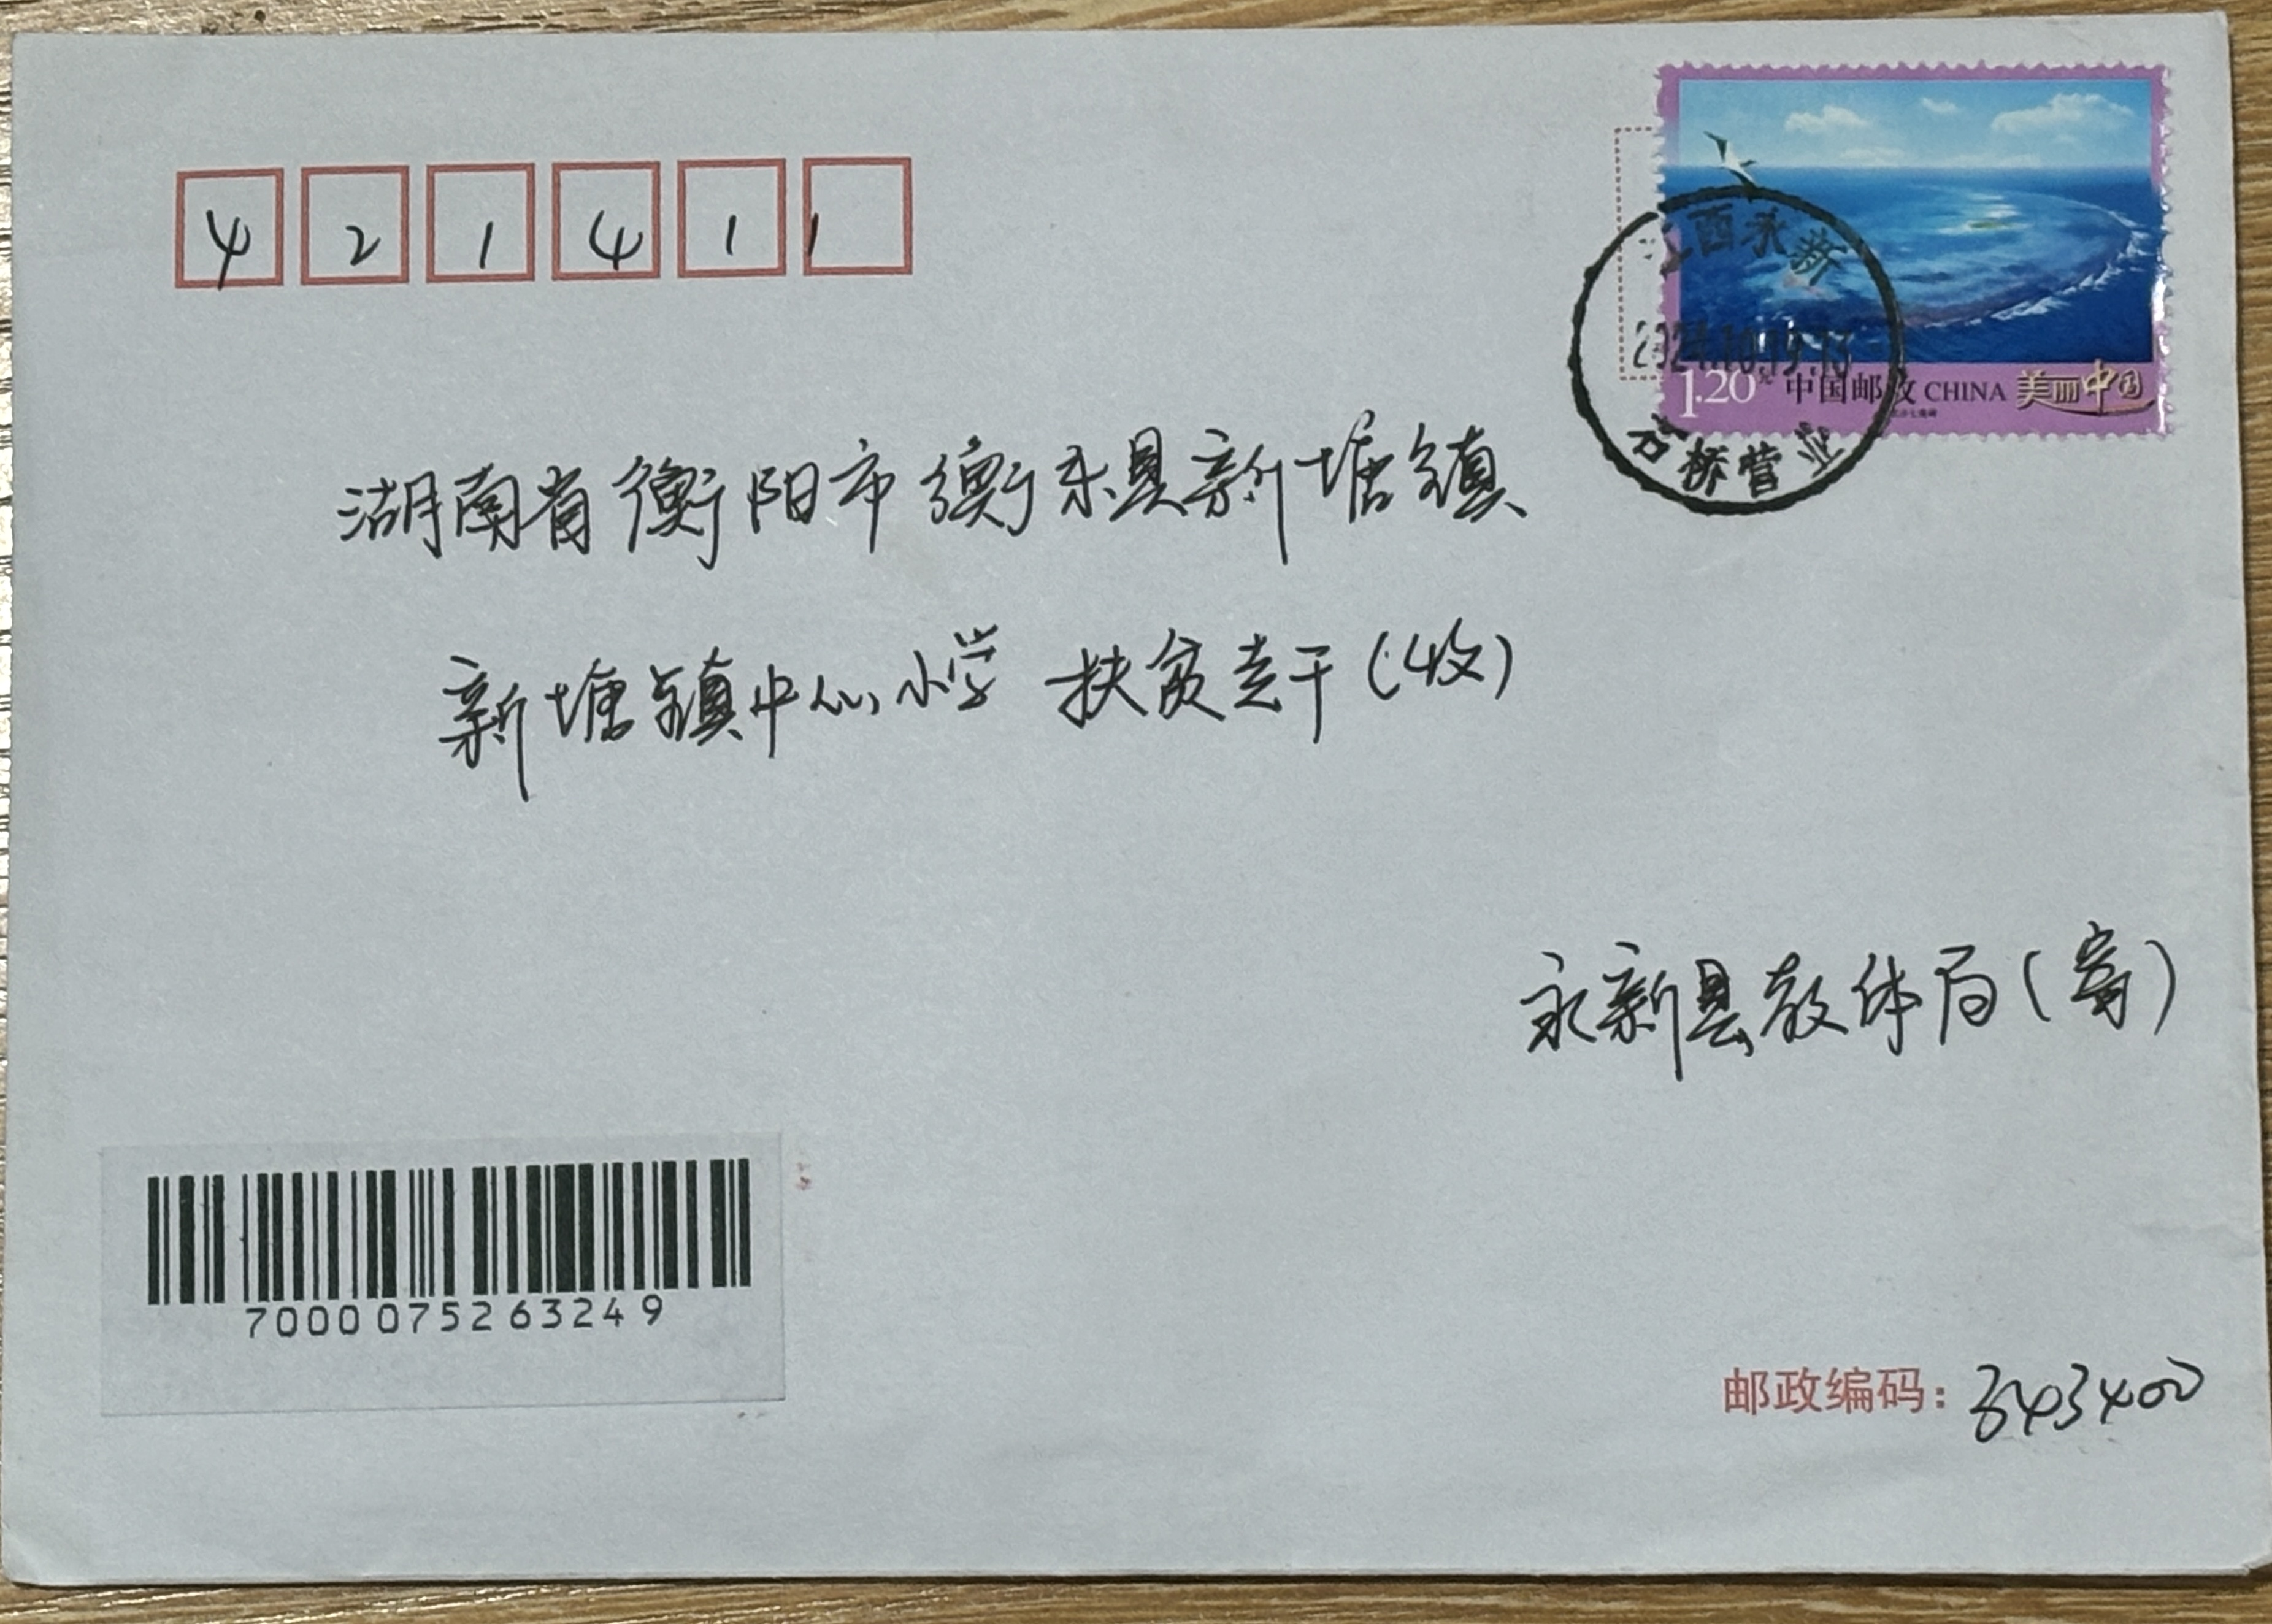 421411
江西永新
2024.10.19.13
石桥营业
1.20元 中国邮政 CHINA 美丽中国
湖南省衡阳市衡东县新塘镇
新塘镇中心小学 扶贫专干(收)
永新县教体局(寄)
7000075263249
邮政编码: 343400